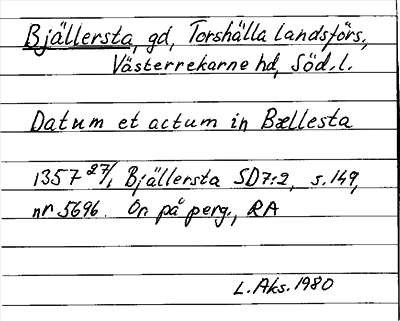 Bjällersta, gd, Torshälla landsförs.,
Västerrekarne hd, Söd. l.
Datum et actum in Bællesta
1357 27/1 Bjällersta SD7:2, s. 149,
nr 5696. Or på perg., RA
L. Aks. 1980